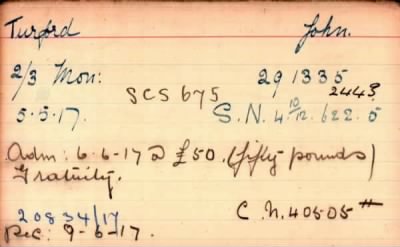 Turford John.
2/3 Mon: 291335
2443
SCS 675
5.5.17. S.N. 4 10/12. 622.5
Adm: 6.6.17 @ £50. (fifty pounds)
Gratuity.
20834/17 C.N. 40505 #
Rec: 9-6-17.